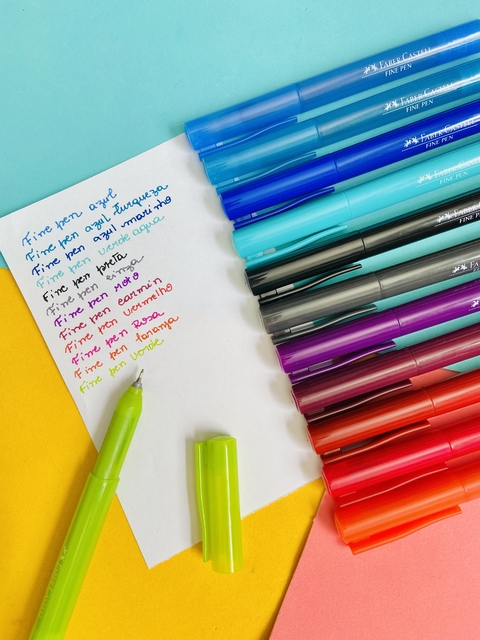 Fine pen azul
Fine pen azul turqueza
Fine pen azul marinho
Fine pen verde agua
Fine pen preta
Fine pen cinza
Fine pen roxo
Fine pen carmin
Fine pen vermelho
Fine pen Rosa
Fine pen laranja
Fine pen verde
FABER-CASTELL
FINE PEN
FABER-CASTELL
FINE PEN
FABER-CASTELL
FINE PEN
FABER-CASTELL
FINE PEN
FABER-CASTELL
FINE PEN
FABER-CASTELL
FINE PEN
FINE PEN